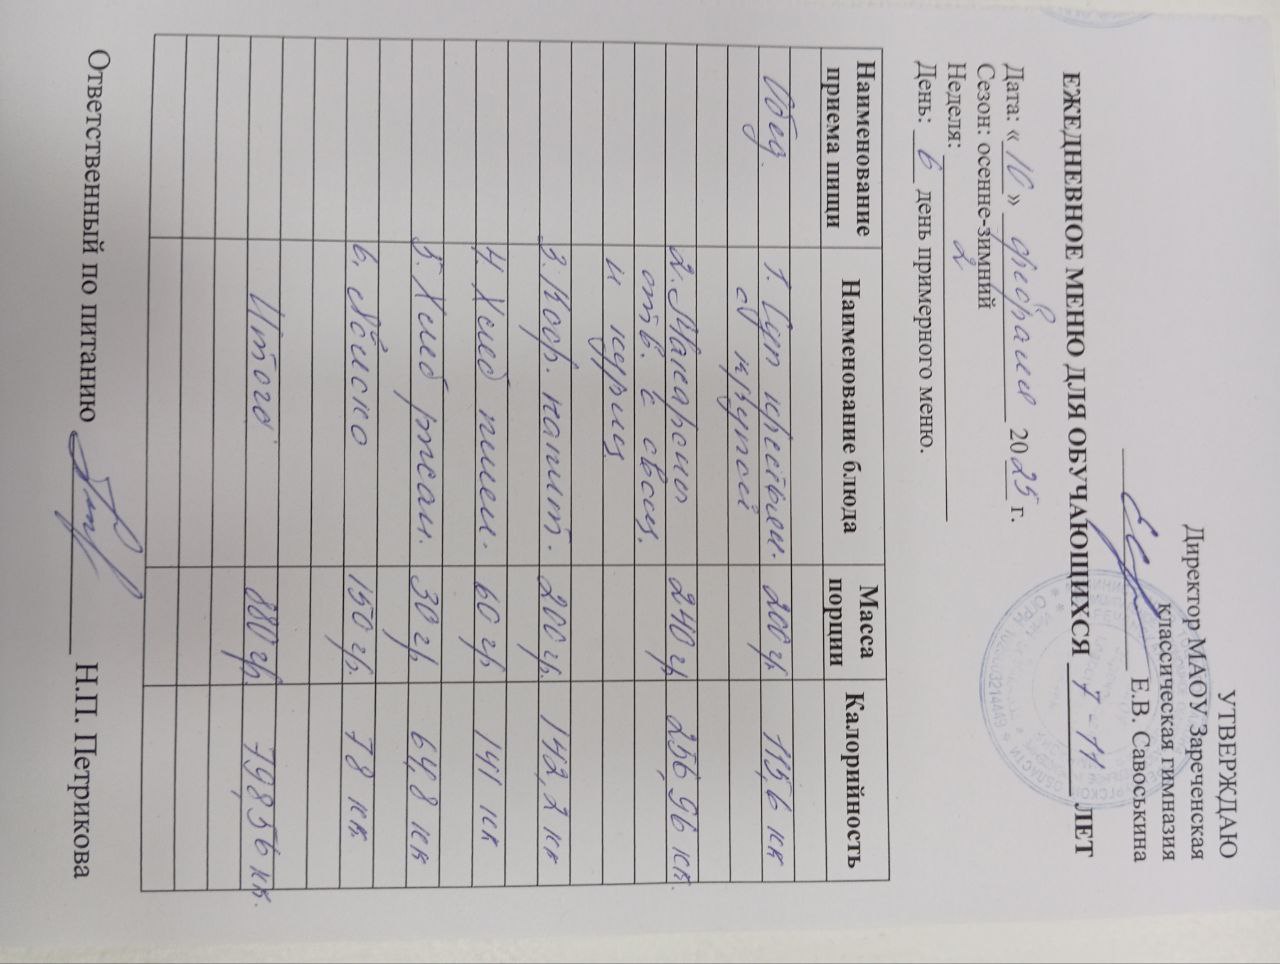 УТВЕРЖДАЮ
Директор МАОУ Зареченская
классическая гимназия
Е.В. Савоськина
ЕЖЕДНЕВНОЕ МЕНЮ ДЛЯ ОБУЧАЮЩИХСЯ 7-11 ЛЕТ
Дата: «10» февраля 2025 г.
Сезон: осенне-зимний
Неделя: 2
День: 6 день примерного меню.
Наименование приема пищи Наименование блюда Масса порции Калорийность
Обед. 1. Суп крестьян. 200 гр 115,6 кк
с крупой
2. Макароны 240 гр 256,96 кк.
отв. с овощ.
и куриц.
3. Коф. напит. 200 гр. 142,2 кк
4. Хлеб пшен. 60 гр 141 кк
5. Хлеб ржан. 30 гр 64,8 кк
6. Яблоко 150 гр. 78 кк
Итого 880 гр. 798,56 кк.
Ответственный по питанию Н.П. Петрикова